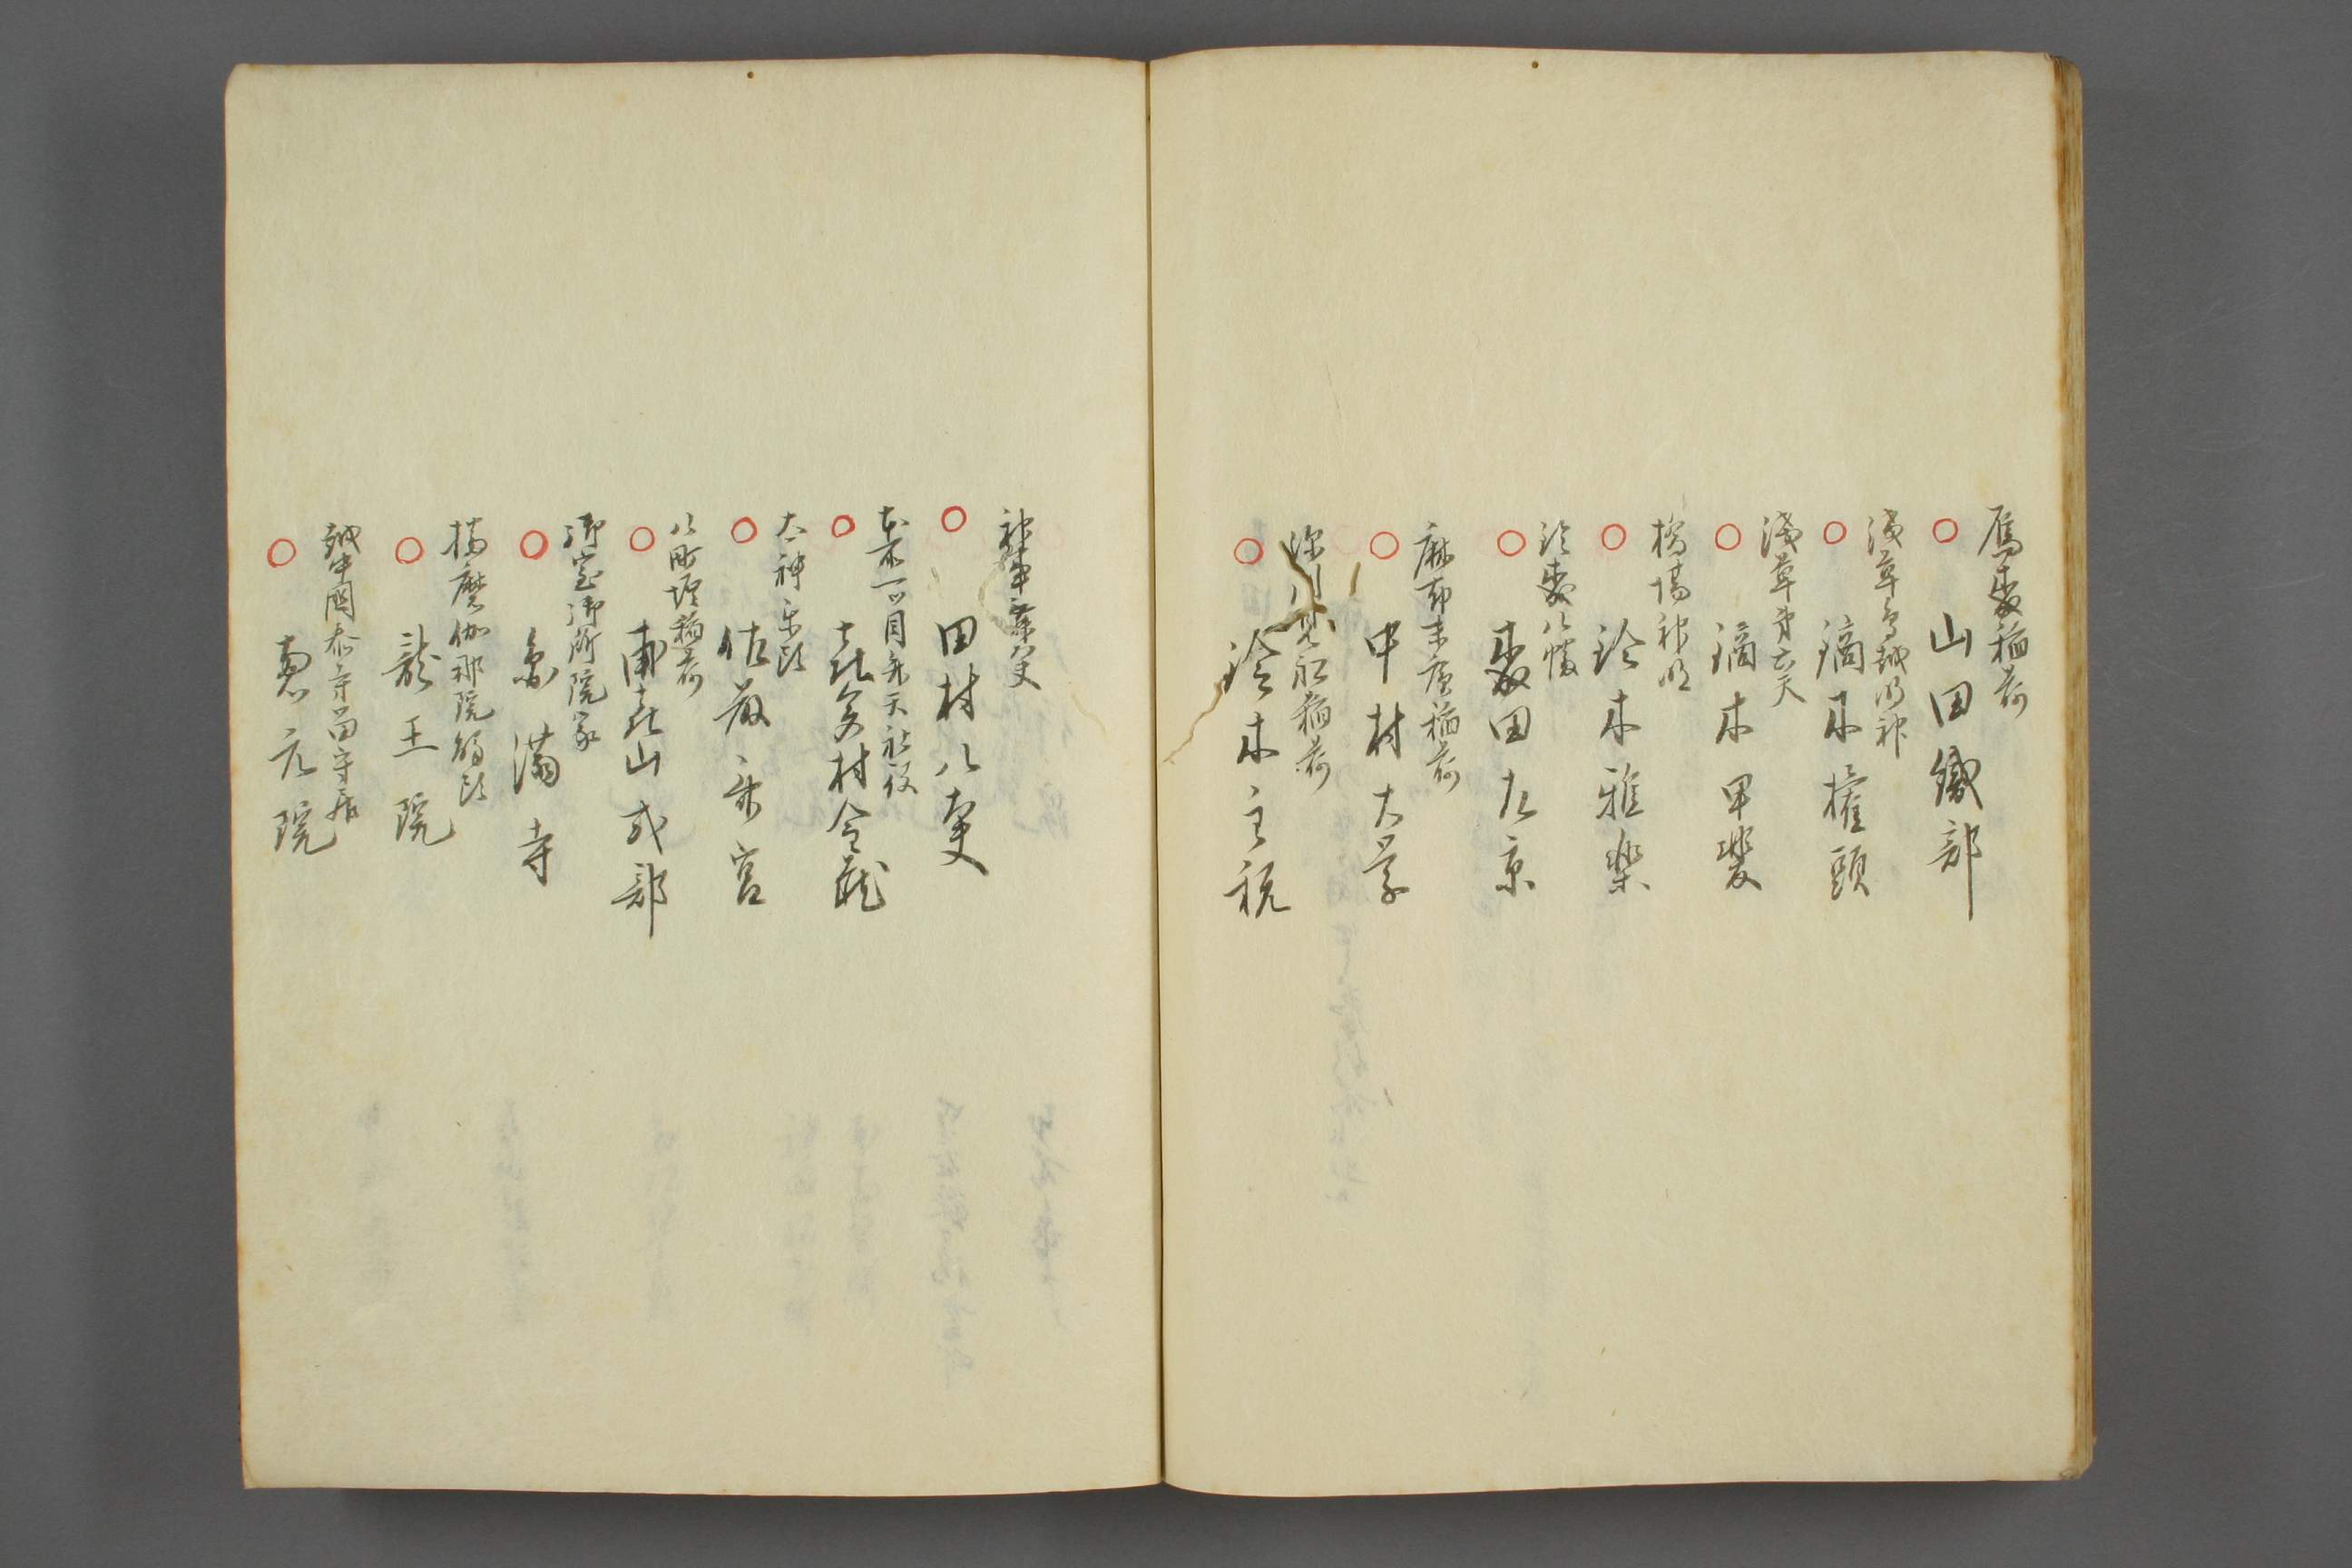 鴈森稲荷
○ 山田織部
浅草鳥越明神
○ 鏑木権頭
浅草第六天
○ 鏑木甲斐
橋場神明
○ 鈴木雅楽
鈴森八幡
○ 森田左京
麻布末廣稲荷
○ 中村大学
深川 稲荷
○ 鈴木主税
神事舞太夫
○ 田村八太夫
本所一ツ目弁天社役
○ 喜多村令蔵
太神楽頭
○ 佐藤 宮
八町堀稲荷
○ 甫喜山式部
御室御所院家
○ 象満寺
播磨伽耶院 頭
○ 龍王院
越中国 寺留守居
○ 恵元院